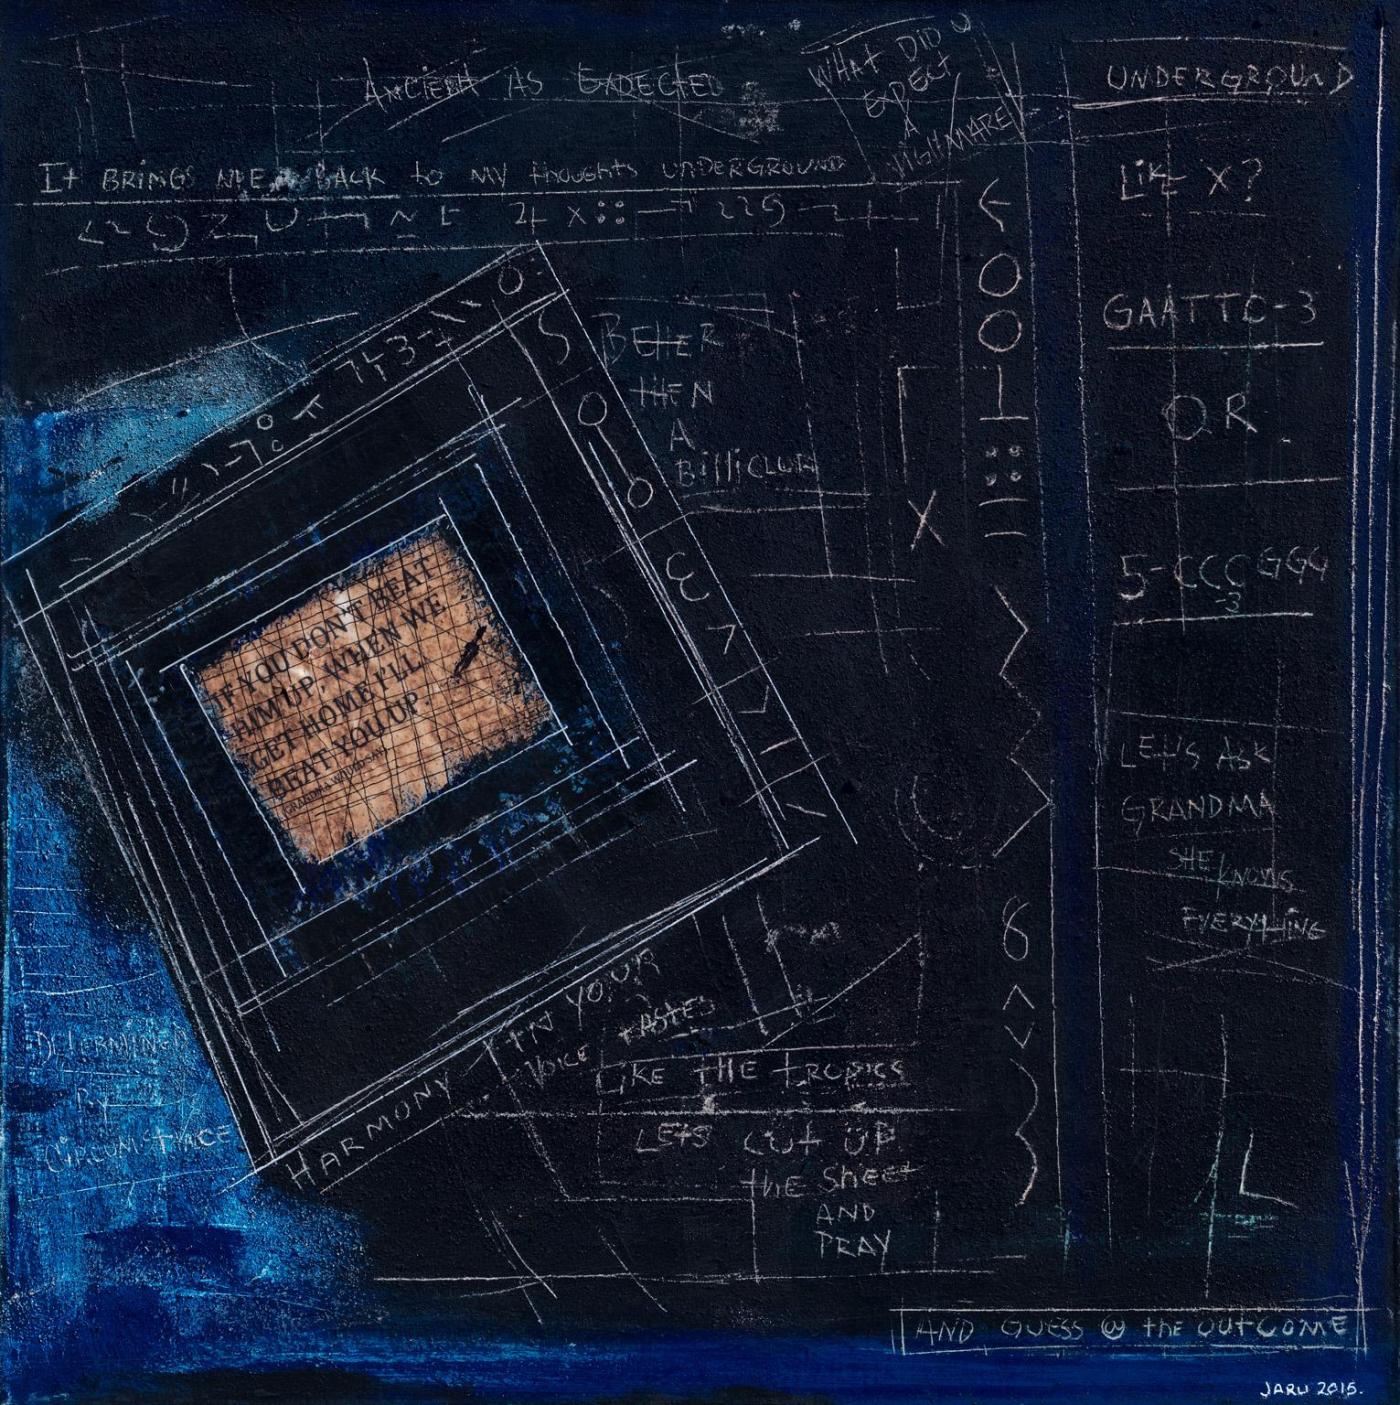 ANCIENT AS EXPECTED
WHAT DID U
EXPECT
A
NIGHTMARE
UNDERGROUND
It BRINGS ME BACK to MY thoughts UNDERGROUND
LiKE X?
GAATTC-3
OR
5-CCCGGG
3
BEttER
tHEN
A
BilliCLUB
IF YOU DON'T BEAT
HIM UP, WHEN WE
GET HOME I'LL
BEAT YOU UP.
LEt'S ASK
GRANDMA
SHE
KNOWS
EVERYtHiNG
DEtERMiNED
BY
CiRCUMStANCE
HARMONY IN YOUR
VOICE tAStES
LiKE tHE tROPiCS
LEtS CUt UP
tHE SHEEt
AND
PRAY
AND GUESS @ tHE OUtCOME
JARU 2015.